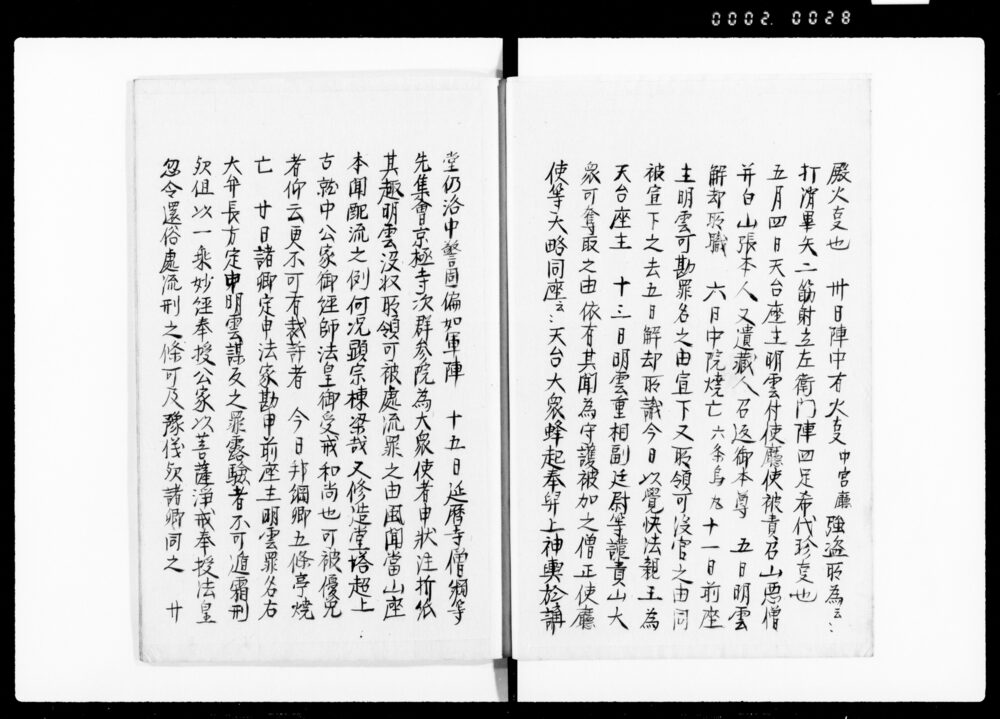 0002. 0028
殿火変也　卅日陣中有火変中宮廳強盗所為云々
打滑畢矢二筋射立左衛門陣四足希代珍変也
五月四日天台座主明雲付使廳使被責召山悪僧
并白山張本人又遣蔵人召返御本尊　五日明雲
解却所職　六日中院焼亡六条烏丸十一日前座
主明雲可勘罪名之由宣下又所領可没官之由同
被宣下之去五日解却所職今日以覚快法親王為
天台座主　十三日明雲重相副廷尉等譴責山大
衆可奪取之由依有其聞為守護被加之僧正使廳
使等大略同座云々天台大衆蜂起奉舁上神輿於講
堂仍洛中警固偏如軍陣　十五日延暦寺僧綱等
先集會京極寺次群参院為大衆使者申状注折紙
其趣明雲没収所領可被處流罪之由風聞當山座
主未聞配流之例何况顕宗棟梁哉又修造堂塔超上
古就中公家御經師法皇御受戒和尚也可被優免
者仰云更不可有裁許者　今日邦綱卿五條亭焼
亡　廿日諸卿定申法家勘申前座主明雲罪名右
大弁長方定申明雲謀反之罪露驗者不可遁霜刑
欤但以一乗妙經奉授公家以菩薩浄戒奉授法皇
忽令還俗處流刑之條可及豫儀欤諸卿同之　廿